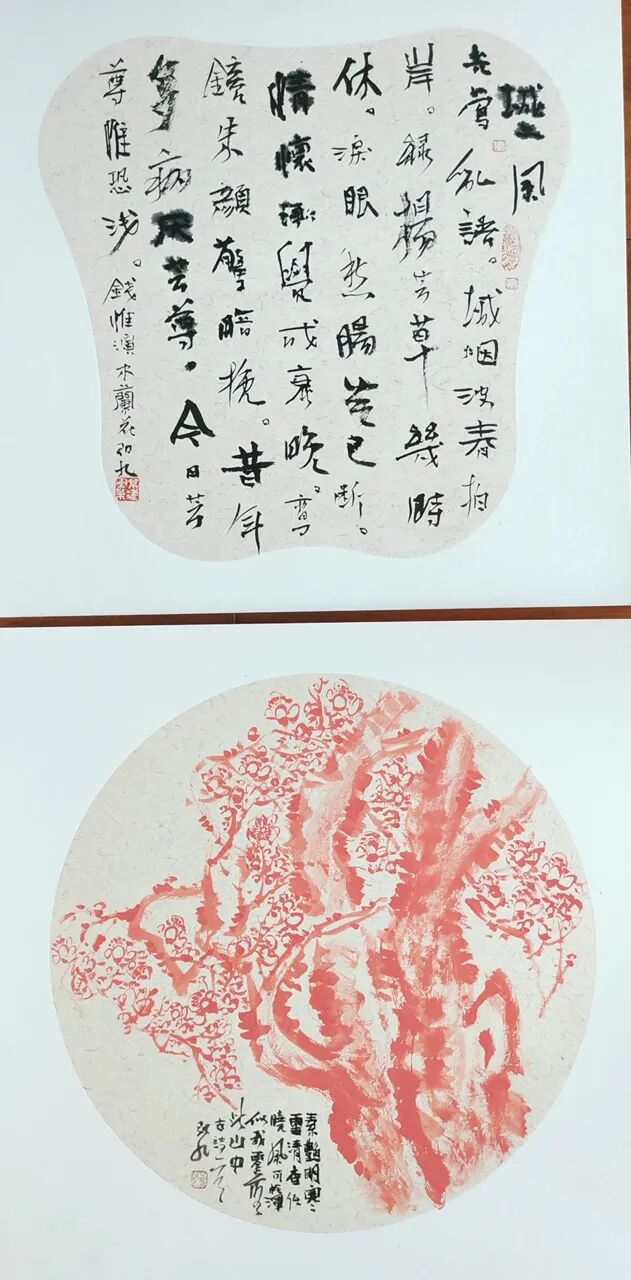 城上風
光鶯亂語。城烟波春拍
岸。綠楊芳草幾時
休。淚眼愁腸先已斷。
情懷漸覺成衰晚。鸞
鏡朱顏驚暗換。昔年
多病厌芳尊，今日芳
尊惟恐浅。錢惟演木蘭花
素艷明寒
雪清香任
曉風可憐渾
似我零落
此山中
古詩一